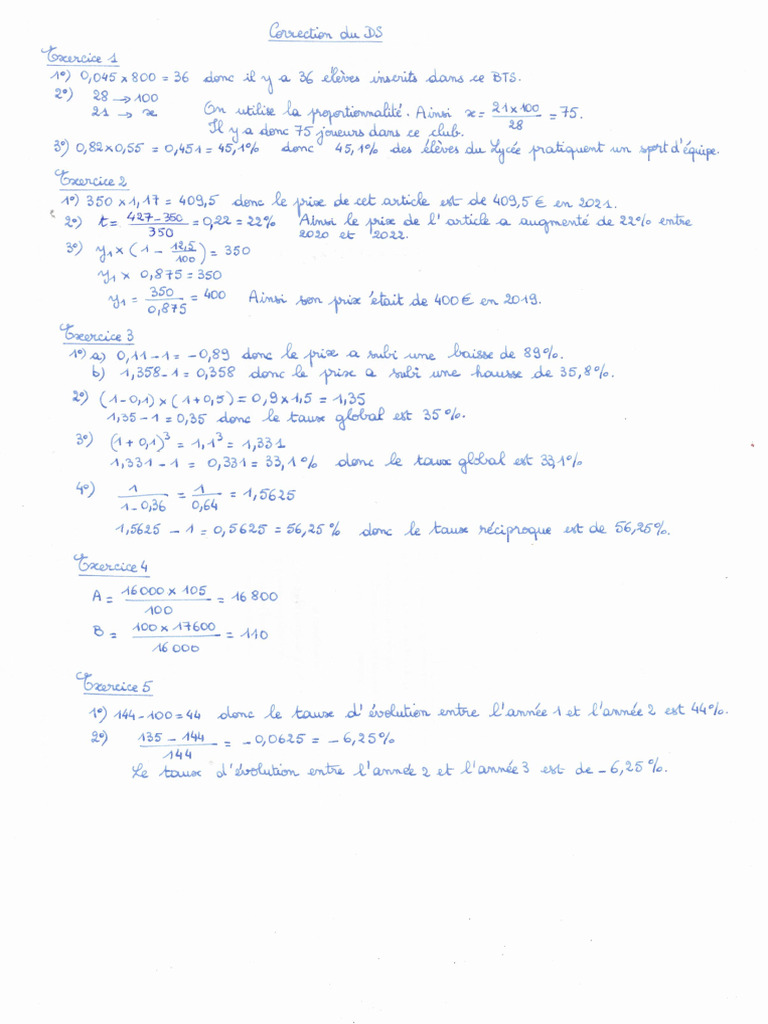 Correction du DS
Exercice 1
1°) 0,045 × 800 = 36 donc il y a 36 élèves inscrits dans ce BTS.
2°) 28 → 100
21 → x On utilise la proportionnalité. Ainsi x = \frac{21 × 100}{28} = 75.
Il y a donc 75 joueurs dans ce club.
3°) 0,82 × 0,55 = 0,451 = 45,1% donc 45,1% des élèves du Lycée pratiquent un sport d'équipe.
Exercice 2
1°) 350 × 1,17 = 409,5 donc le prix de cet article est de 409,5 € en 2021.
2°) t = \frac{427 - 350}{350} = 0,22 = 22% Ainsi le prix de l'article a augmenté de 22% entre
2020 et 2022.
3°) y₁ × (1 - \frac{12,5}{100}) = 350
y₁ × 0,875 = 350
y₁ = \frac{350}{0,875} = 400 Ainsi son prix était de 400 € en 2019.
Exercice 3
1°) a) 0,11 - 1 = - 0,89 donc le prix a subi une baisse de 89%.
b) 1,358 - 1 = 0,358 donc le prix a subi une hausse de 35,8%.
2°) (1 - 0,1) × (1 + 0,5) = 0,9 × 1,5 = 1,35
1,35 - 1 = 0,35 donc le taux global est 35%.
3°) (1 + 0,1)³ = 1,1³ = 1,331
1,331 - 1 = 0,331 = 33,1% donc le taux global est 33,1%
4°) \frac{1}{1 - 0,36} = \frac{1}{0,64} = 1,5625
1,5625 - 1 = 0,5625 = 56,25% donc le taux réciproque est de 56,25%.
Exercice 4
A = \frac{16000 × 105}{100} = 16 800
B = \frac{100 × 17600}{16 000} = 110
Exercice 5
1°) 144 - 100 = 44 donc le taux d'évolution entre l'année 1 et l'année 2 est 44%.
2°) \frac{135 - 144}{144} = - 0,0625 = - 6,25%
Le taux d'évolution entre l'année 2 et l'année 3 est de - 6,25%.